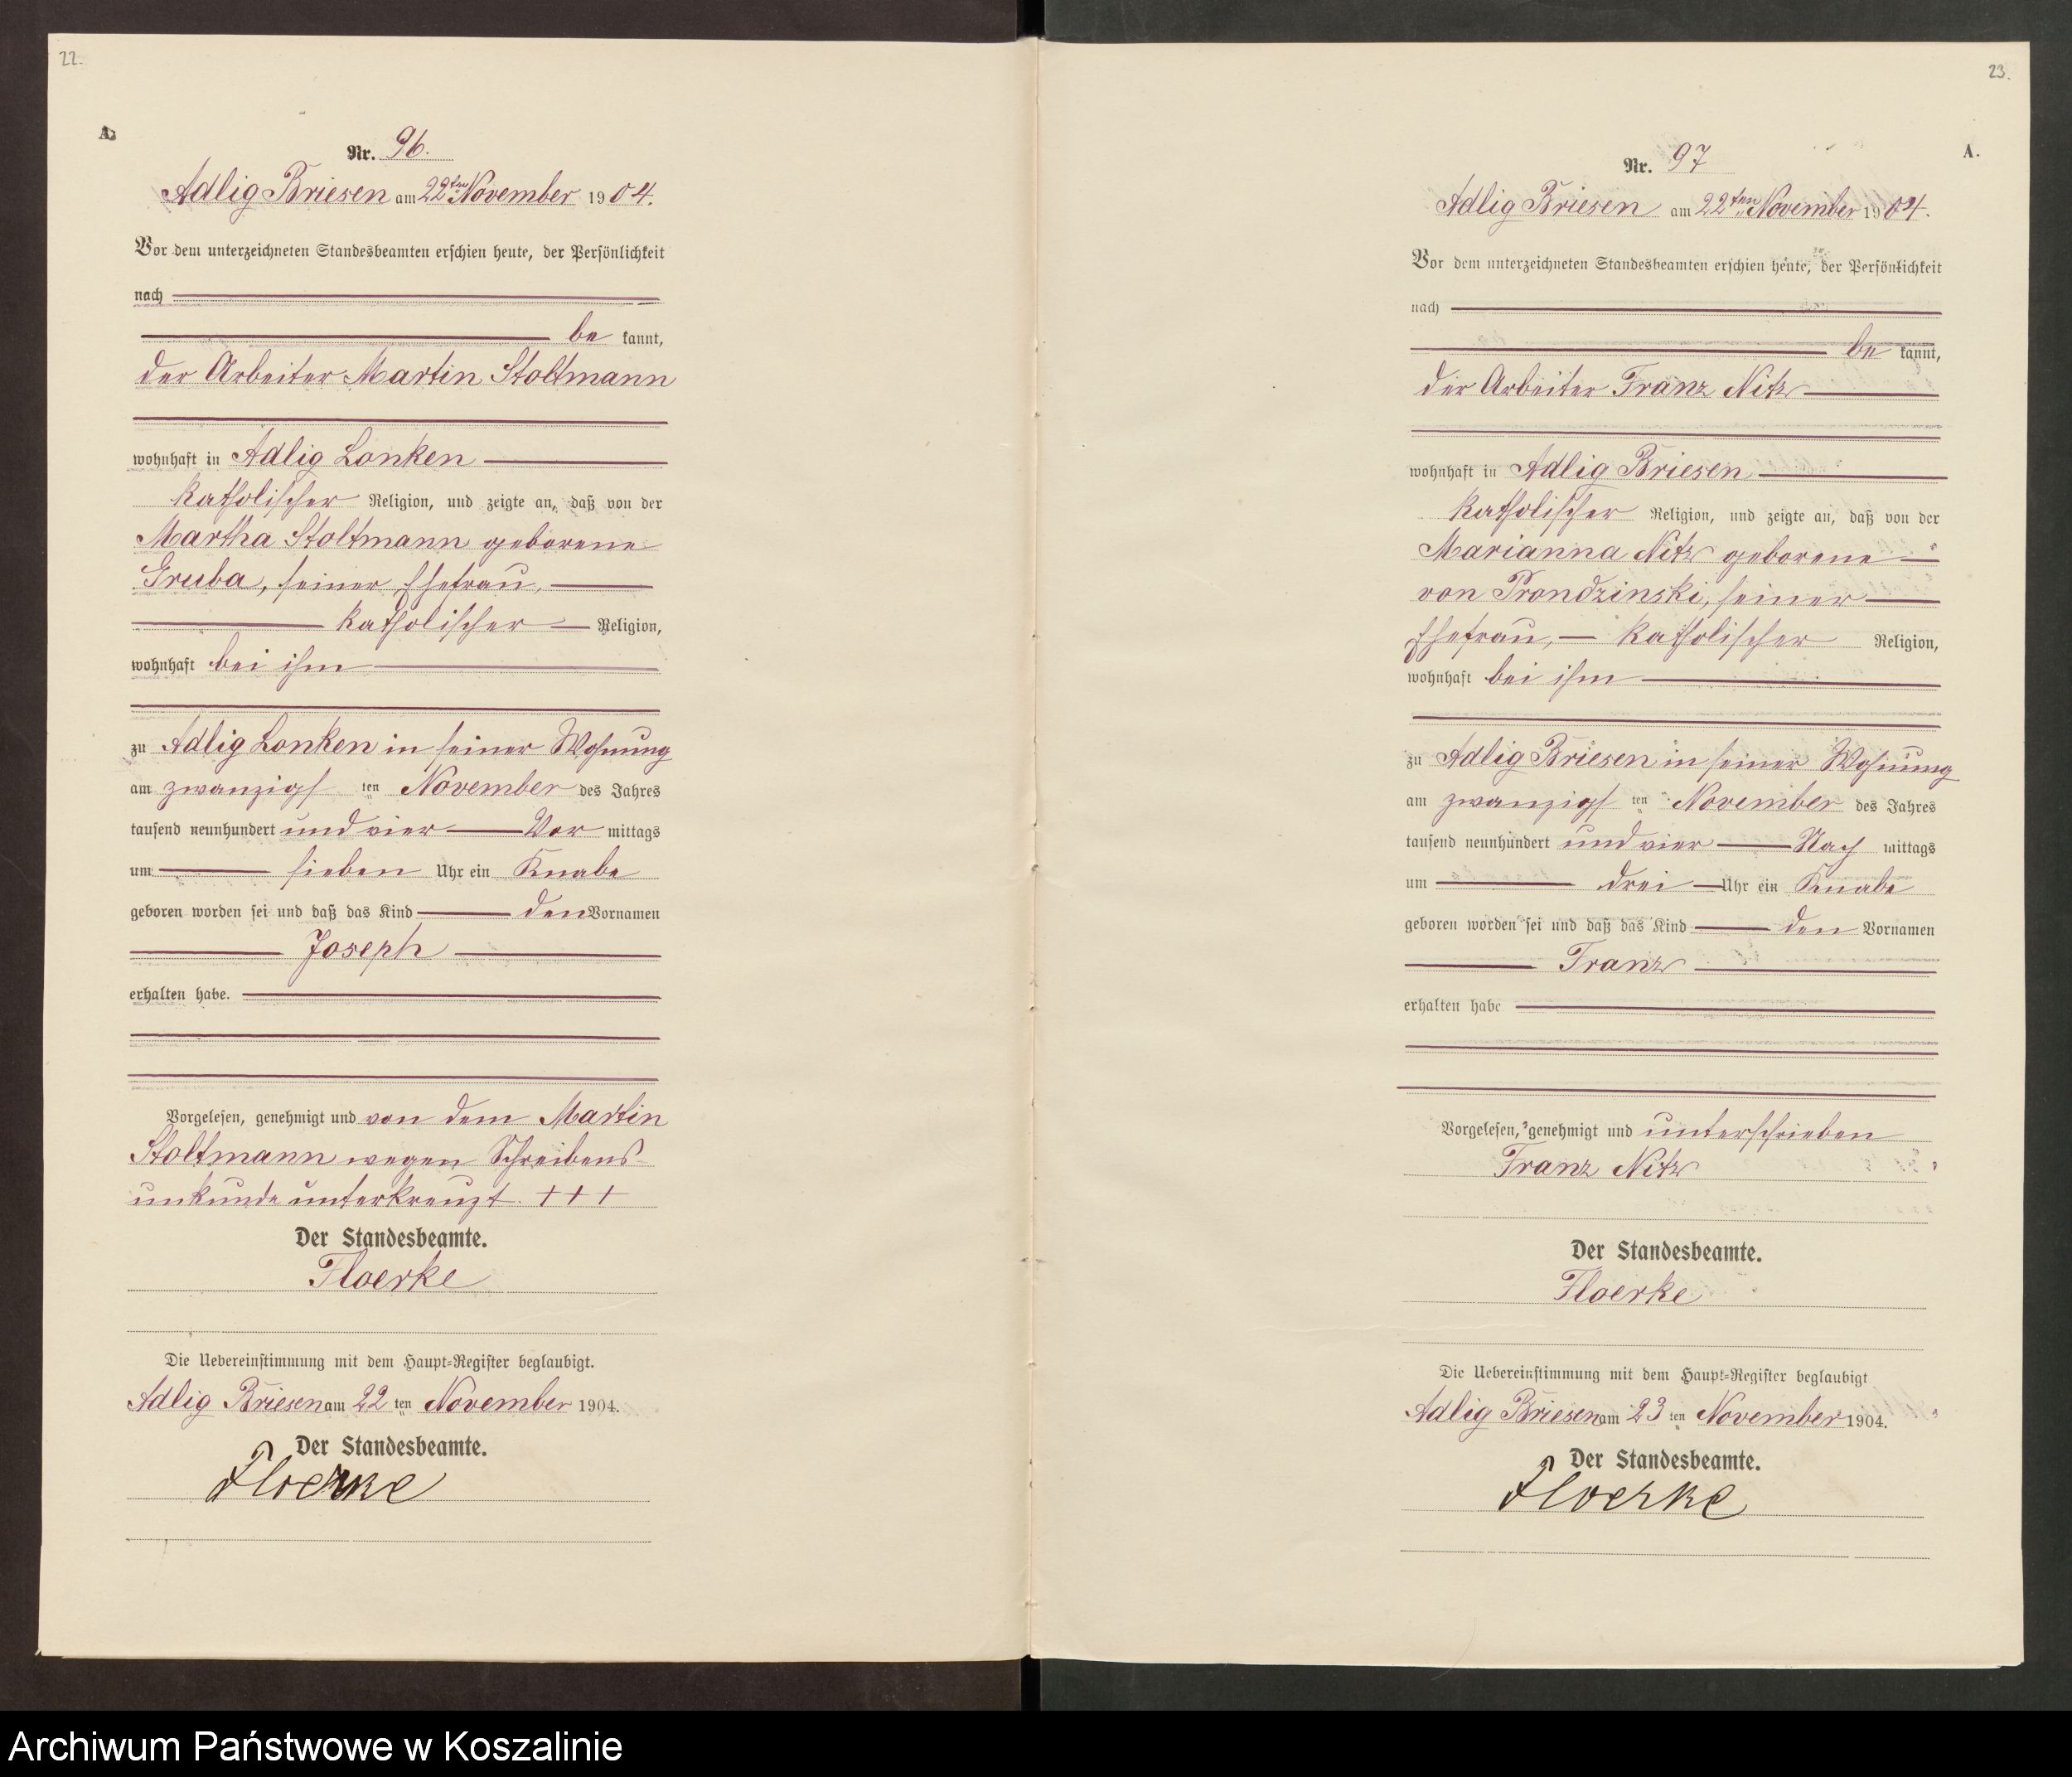 22.
A.
Nr. 96.
Adlig Briesen am 22ten November 1904.
Vor dem unterzeichneten Standesbeamten erschien heute, der Persönlichkeit
nach
be kannt,
der Arbeiter Martin Stoltmann
wohnhaft in Adlig Lonken
katholischer Religion, und zeigte an, daß von der
Martha Stoltmann geborene
Gruba, seiner Ehefrau,
katholischer Religion,
wohnhaft bei ihm
zu Adlig Lonken in seiner Wohnung
am zwanzigs ten November des Jahres
tausend neunhundert und vier Vor mittags
um sieben Uhr ein Knabe
geboren worden sei und daß das Kind den Vornamen
Joseph
erhalten habe.
Vorgelesen, genehmigt und von dem Martin
Stoltmann wegen Schreibens-
unkunde unterkreuzt. +++
Der Standesbeamte.
Floerke
Die Uebereinstimmung mit dem Haupt-Register beglaubigt.
Adlig Briesen am 22 ten November 1904.
Der Standesbeamte.
Floerke
23.
A.
Nr. 97
Adlig Briesen am 22ten November 1904.
Vor dem unterzeichneten Standesbeamten erschien heute, der Persönlichkeit
nach
be kannt,
der Arbeiter Franz Nitz
wohnhaft in Adlig Briesen
katholischer Religion, und zeigte an, daß von der
Marianna Nitz geborene
von Prondzinski, seiner
Ehefrau, katholischer Religion,
wohnhaft bei ihm
zu Adlig Briesen in seiner Wohnung
am zwanzigs ten November des Jahres
tausend neunhundert und vier Nach mittags
um drei Uhr ein Knabe
geboren worden sei und daß das Kind den Vornamen
Franz
erhalten habe
Vorgelesen, genehmigt und unterschrieben
Franz Nitz
Der Standesbeamte.
Floerke
Die Uebereinstimmung mit dem Haupt-Register beglaubigt
Adlig Briesen am 23 ten November 1904.
Der Standesbeamte.
Floerke
Archiwum Państwowe w Koszalinie